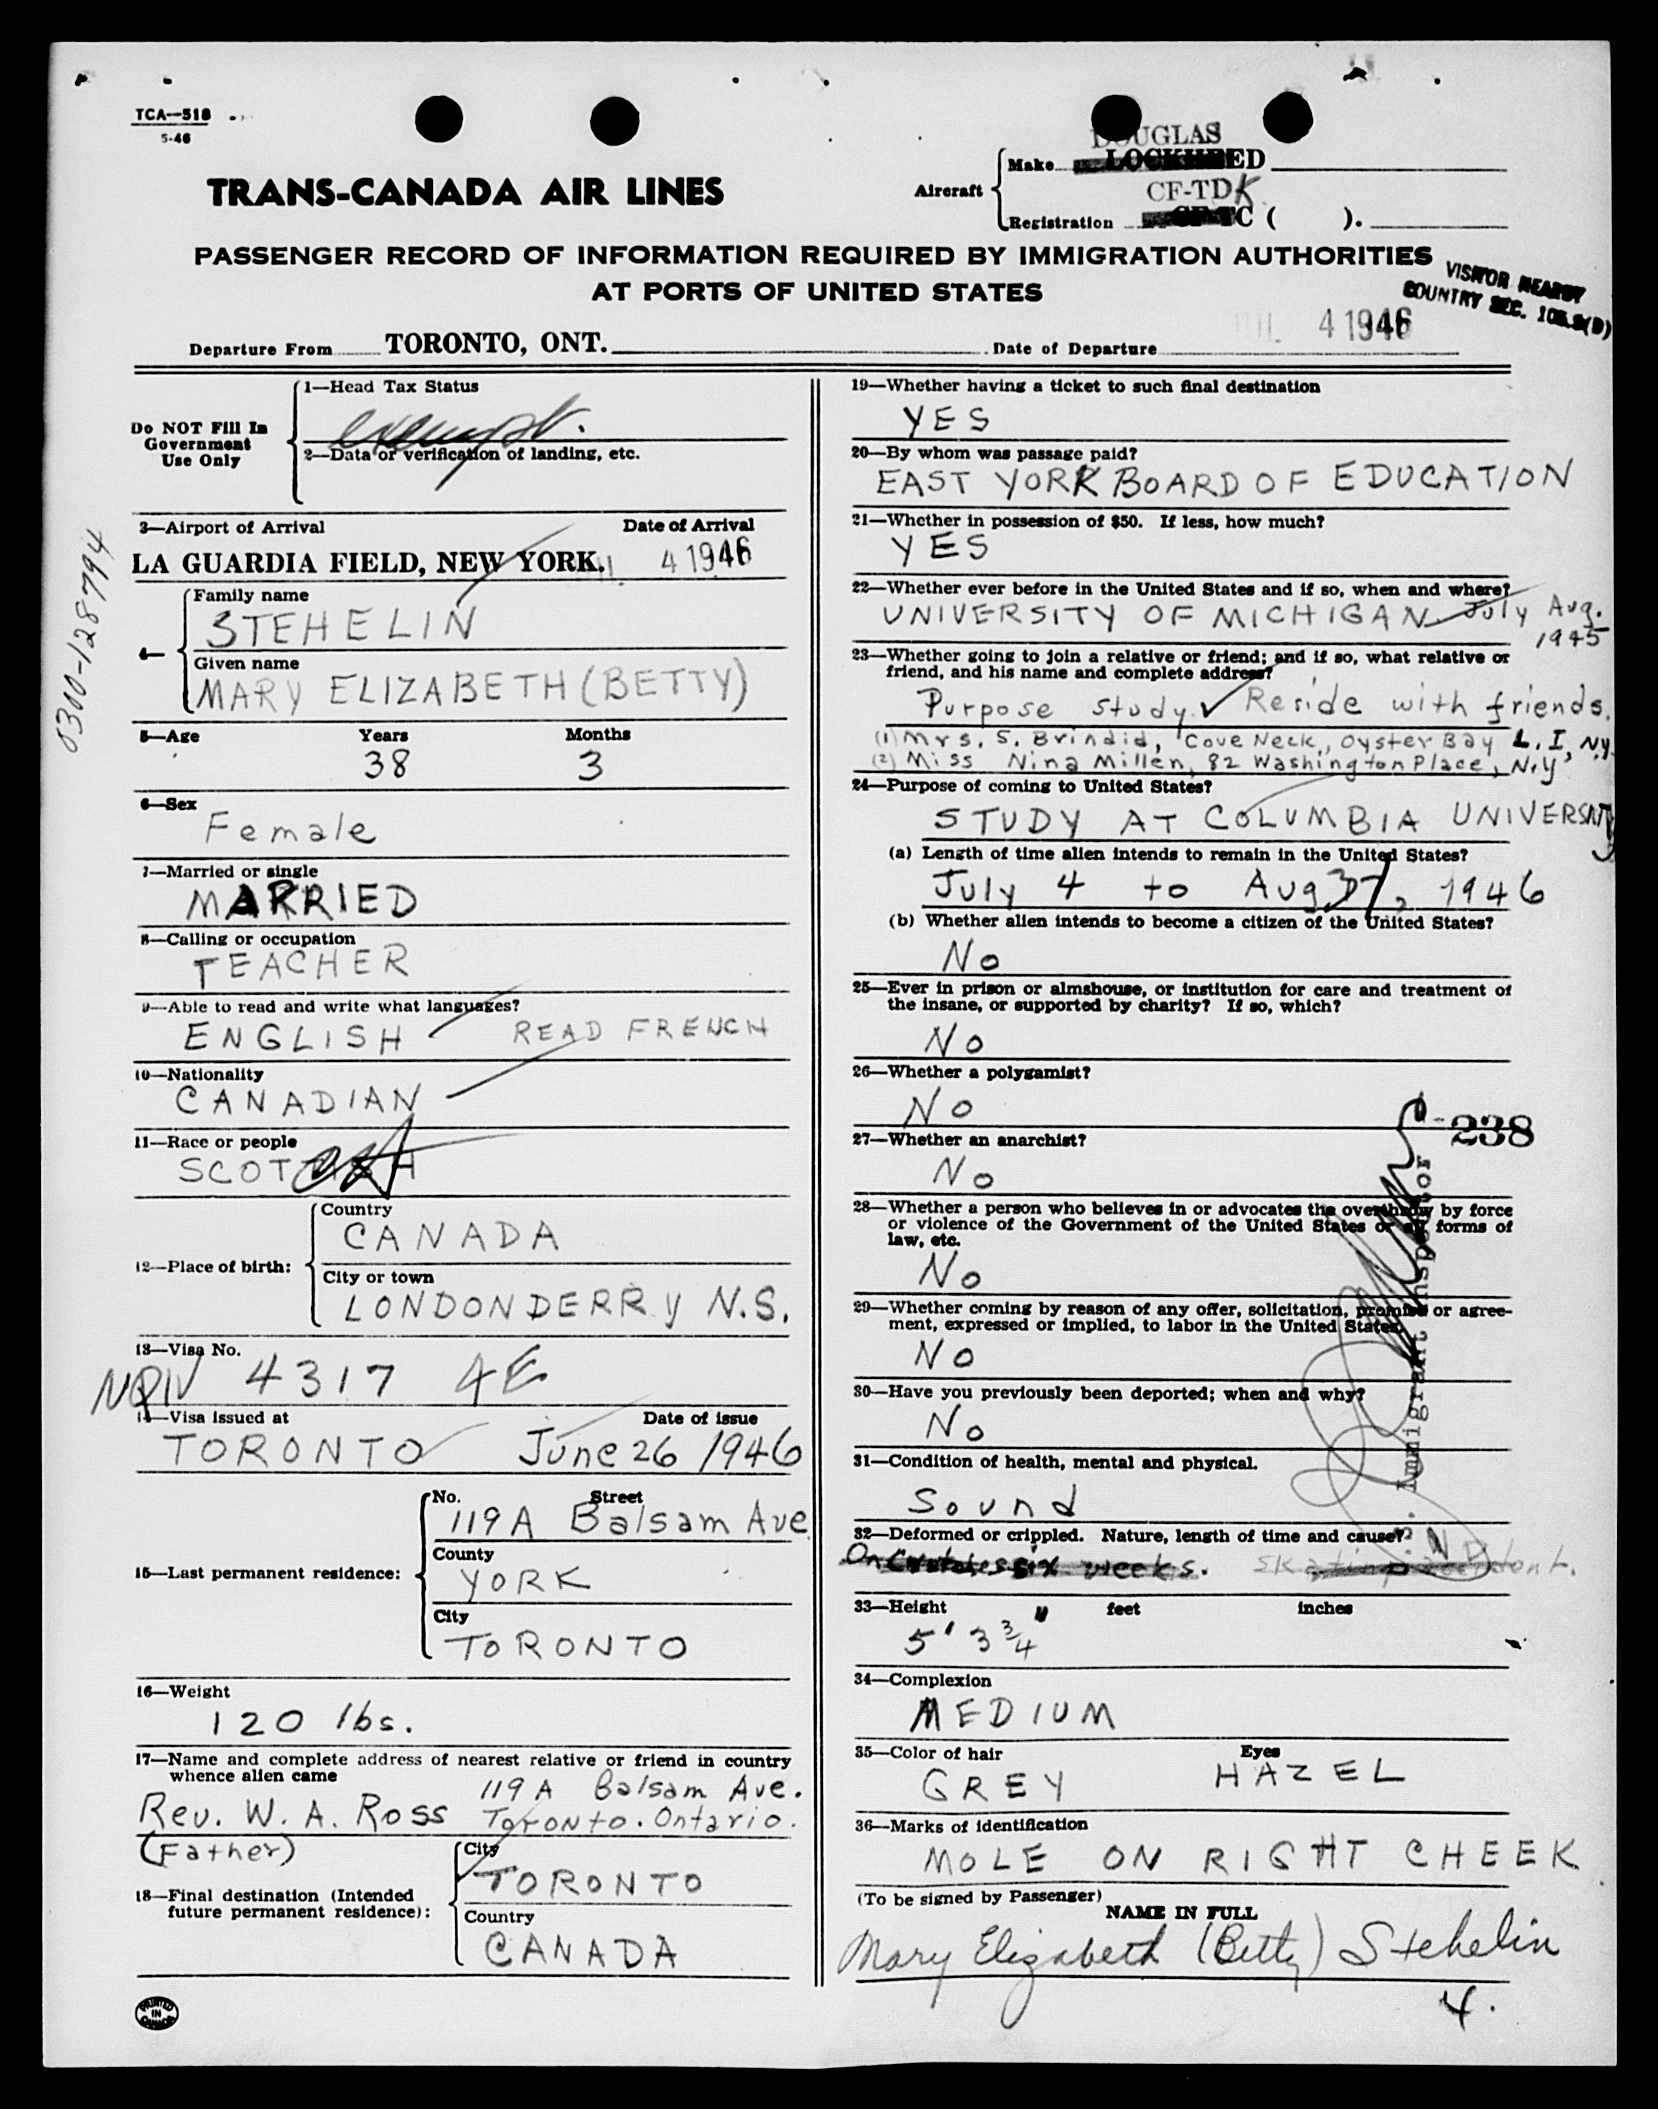 TCA—518
5-46
DOUGLAS
Make LOCKHEED
TRANS-CANADA AIR LINES
Aircraft
CF-TDK
Registration CF-TC ( ).
PASSENGER RECORD OF INFORMATION REQUIRED BY IMMIGRATION AUTHORITIES
AT PORTS OF UNITED STATES
VISITOR NEARBY
COUNTRY SEC.
Departure From TORONTO, ONT. Date of Departure 4 1946
Do NOT Fill In
Government
Use Only
1—Head Tax Status
exempt.
2—Data or verification of landing, etc.
3—Airport of Arrival Date of Arrival
LA GUARDIA FIELD, NEW YORK. 4 1946
0300-128794
4—
Family name
STEHELIN
Given name
MARY ELIZABETH (BETTY)
5—Age Years Months
38 3
6—Sex
Female
7—Married or single
MARRIED
8—Calling or occupation
TEACHER
9—Able to read and write what languages?
ENGLISH READ FRENCH
10—Nationality
CANADIAN
11—Race or people
SCOTCH
12—Place of birth:
Country
CANADA
City or town
LONDONDERRY N.S.
13—Visa No.
NQIV 4317 4E
14—Visa issued at Date of issue
TORONTO June 26 1946
15—Last permanent residence:
No. Street
119A Balsam Ave
County
YORK
City
TORONTO
16—Weight
120 lbs.
17—Name and complete address of nearest relative or friend in country
whence alien came
119 A Balsam Ave.
Rev. W. A. Ross Toronto. Ontario.
(Father)
18—Final destination (Intended
future permanent residence):
City
TORONTO
Country
CANADA
PRINTED
IN
CANADA
19—Whether having a ticket to such final destination
YES
20—By whom was passage paid?
EAST YORK BOARD OF EDUCATION
21—Whether in possession of $50. If less, how much?
YES
22—Whether ever before in the United States and if so, when and where?
UNIVERSITY OF MICHIGAN July Aug.
1945
23—Whether going to join a relative or friend; and if so, what relative or
friend, and his name and complete address?
Purpose study. Reside with friends.
(1) Mrs. S. Brindid, Cove Neck, Oyster Bay L. I, N.Y.
(2) Miss Nina Millen, 82 Washington Place, N.Y
24—Purpose of coming to United States?
STUDY AT COLUMBIA UNIVERSITY
(a) Length of time alien intends to remain in the United States?
July 4 to Aug 31, 1946
(b) Whether alien intends to become a citizen of the United States?
No
25—Ever in prison or almshouse, or institution for care and treatment of
the insane, or supported by charity? If so, which?
No
26—Whether a polygamist?
No
238
27—Whether an anarchist?
No
28—Whether a person who believes in or advocates the overthrow by force
or violence of the Government of the United States or all forms of
law, etc.
No
29—Whether coming by reason of any offer, solicitation, promise or agree-
ment, expressed or implied, to labor in the United States
No
30—Have you previously been deported; when and why?
No
Immigrant Inspector
31—Condition of health, mental and physical.
Sound
32—Deformed or crippled. Nature, length of time and cause?
On Crutches six weeks. Skating accident.
33—Height feet inches
5' 3 3/4"
34—Complexion
MEDIUM
35—Color of hair Eyes
GREY HAZEL
36—Marks of identification
MOLE ON RIGHT CHEEK
(To be signed by Passenger)
NAME IN FULL
Mary Elizabeth (Betty) Stehelin
4.